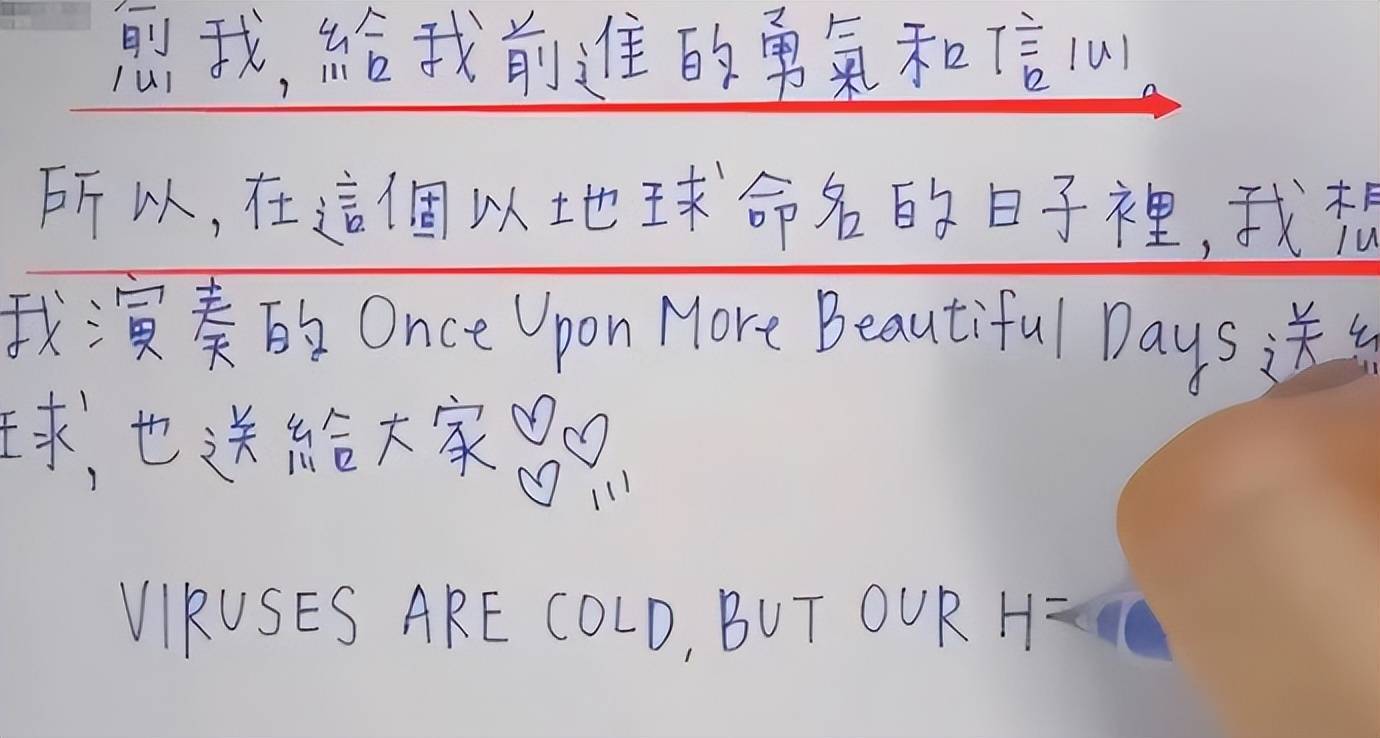 愈我,給我前進的勇氣和信心。
所以,在這個以地球命名的日子裡,我想
我演奏的 Once Upon More Beautiful Days 送給
球,也送給大家
VIRUSES ARE COLD, BUT OUR HE